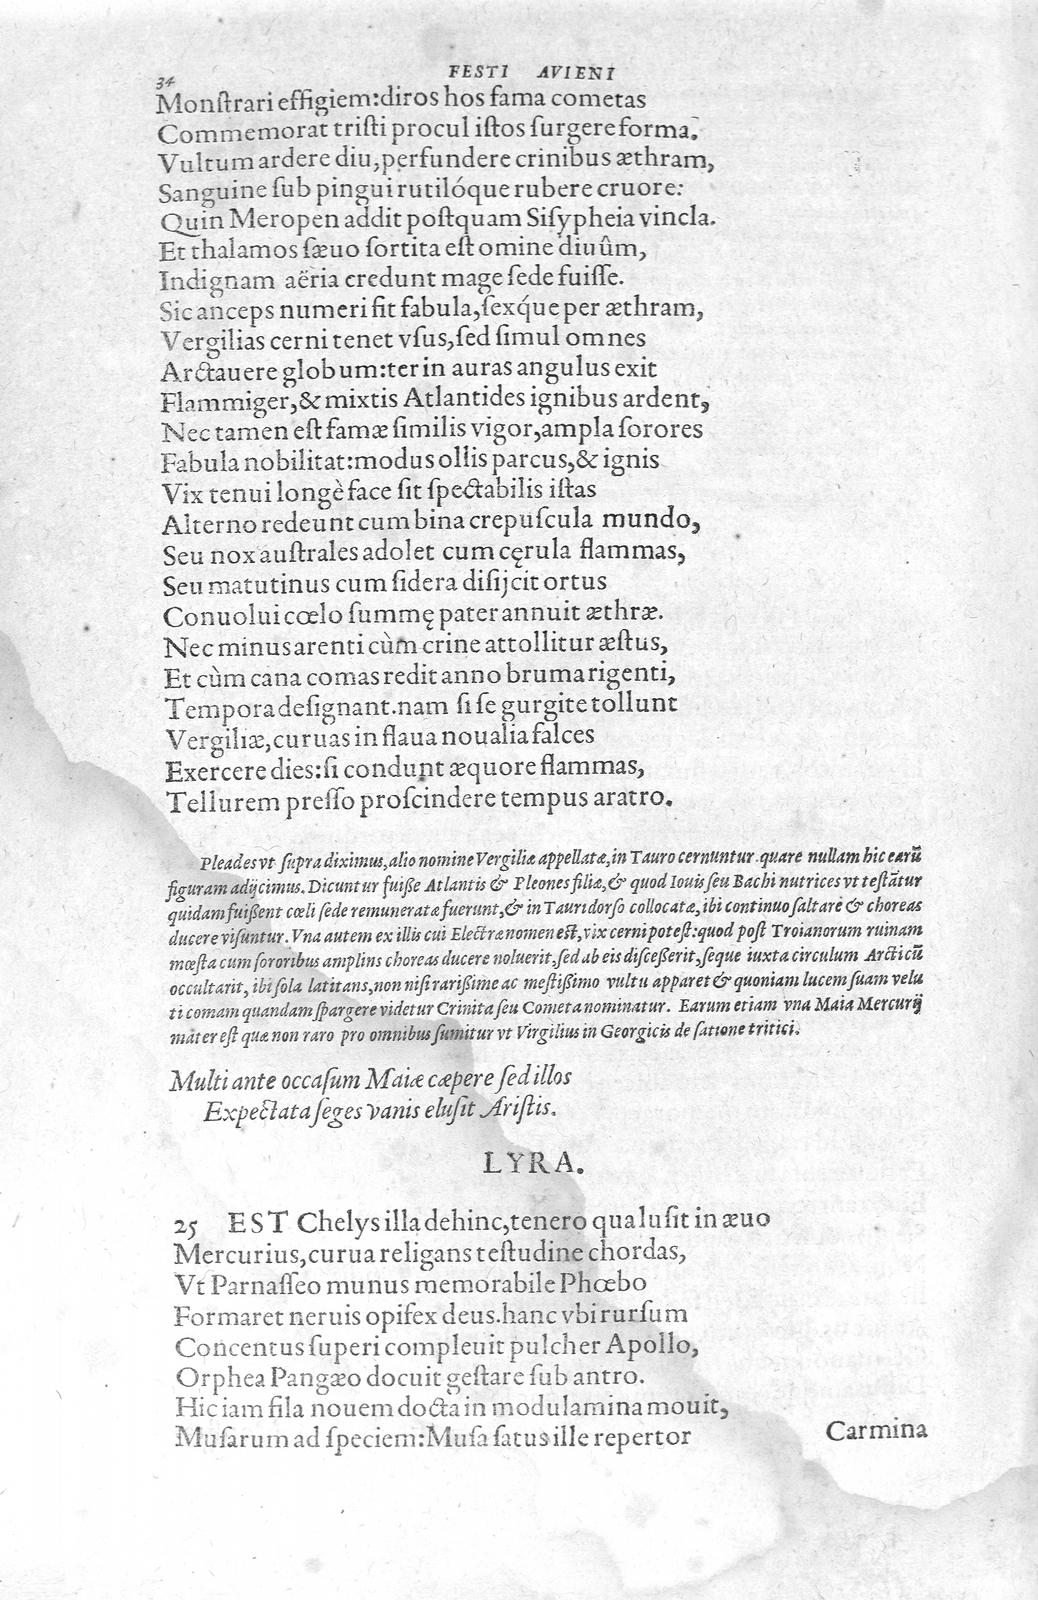 34
FESTI AVIENI
Monſtrari effigiem:diros hos fama cometas
Commemorat triſti procul iſtos ſurgere forma.
Vultum ardere diu,perfundere crinibus æthram,
Sanguine ſub pingui rutilóque rubere cruore:
Quin Meropen addit poſtquam Siſypheia vincla.
Et thalamos ſæuo ſortita eſt omine diuûm,
Indignam aëria credunt mage ſede fuiſſe.
Sic anceps numeri fit fabula,ſexq́ue per æthram,
Vergilias cerni tenet vſus,ſed ſimul omnes
Arctauere globum:ter in auras angulus exit
Flammiger,& mixtis Atlantides ignibus ardent,
Nec tamen eſt famæ ſimilis vigor,ampla ſorores
Fabula nobilitat:modus ollis parcus,& ignis
Vix tenui longè face fit ſpectabilis iſtas
Alterno redeunt cum bina crepuſcula mundo,
Seu nox auſtrales adolet cum cęrula flammas,
Seu matutinus cum ſidera diſijcit ortus
Conuolui cœlo ſummę pater annuit æthræ.
Nec minus arenti cùm crine attollitur æſtus,
Et cùm cana comas redit anno bruma rigenti,
Tempora deſignant.nam ſi ſe gurgite tollunt
Vergiliæ,curuas in flaua noualia falces
Exercere dies:ſi condunt æquore flammas,
Tellurem preſſo proſcindere tempus aratro.
Pleades vt ſupra diximus,alio nomine Vergiliæ appellatæ,in Tauro cernuntur.quare nullam hic earū
figuram adijcimus.Dicuntur fuiße Atlantis & Pleones filiæ,& quod Iouis ſeu Bachi nutrices vt teſtātur
quidam fuißent cœli ſede remuneratæ fuerunt,& in Tauri dorſo collocatæ,ibi continuo ſaltare & choreas
ducere viſuntur.Vna autem ex illis cui Electræ nomen eſt,vix cerni poteſt:quod poſt Troianorum ruinam
mœſta cum ſororibus amplins choreas ducere noluerit,ſed ab eis diſceßerit,ſeque iuxta circulum Arcticū
occultarit,ibi ſola latitans,non niſi rarißime ac meſtißimo vultu apparet & quoniam lucem ſuam velu
ti comam quandam ſpargere videtur Crinita ſeu Cometa nominatur. Earum etiam vna Maia Mercurij
mater eſt quæ non raro pro omnibus ſumitur vt Virgilius in Georgicis de ſatione tritici.
Multi ante occaſum Maiæ cæpere ſed illos
Expectata ſeges vanis eluſit Ariſtis.
LYRA.
25 EST Chelys illa dehinc,tenero qua luſit in æuo
Mercurius,curua religans teſtudine chordas,
Vt Parnaſſeo munus memorabile Phœbo
Formaret neruis opifex deus.hanc vbi rurſum
Concentus ſuperi compleuit pulcher Apollo,
Orphea Pangæo docuit geſtare ſub antro.
Hic iam fila nouem docta in modulamina mouit,
Muſarum ad ſpeciem:Muſa ſatus ille repertor
Carmina